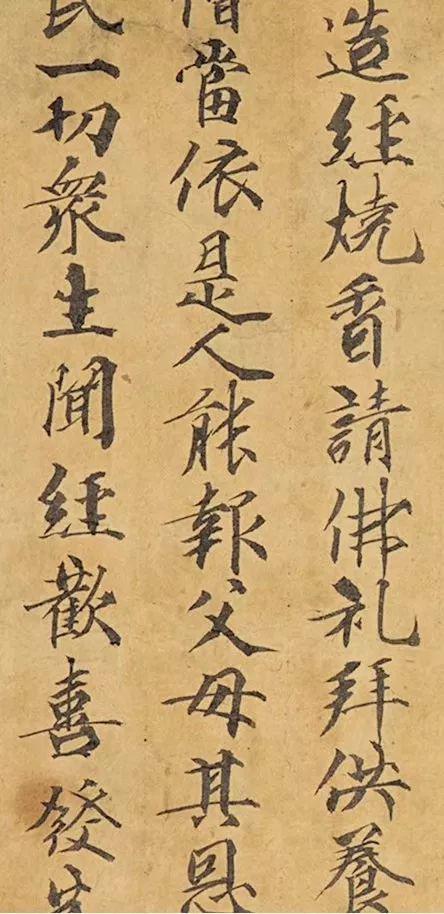 造經燒香請佛礼拜供養
當依是人能報父母其恩
民一切衆生聞經歡喜發